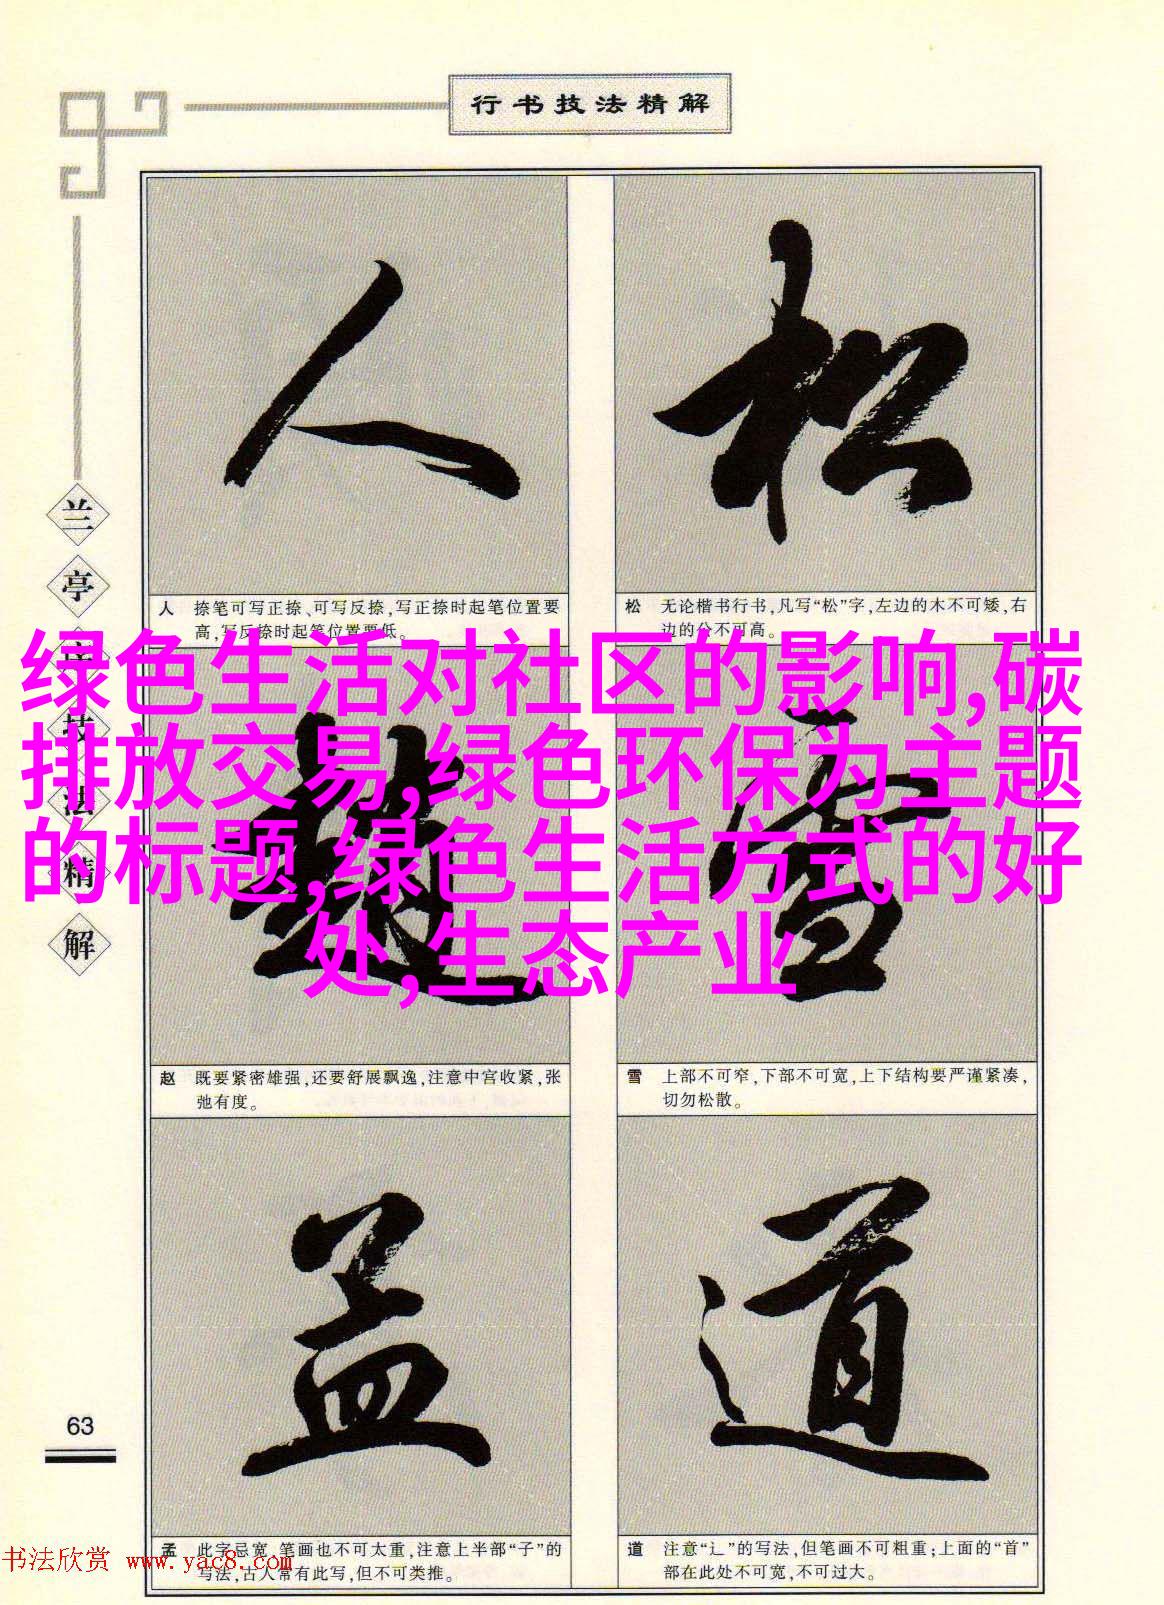 行书技法精解
人 松
人 捺笔可写正捺、可写反捺,写正捺时起笔位置要
高,写反捺时起笔位置要低。
松 无论楷书行书,凡写“松”字,左边的木不可矮,右
边的公不可高。
绿色生活对社区的影响,碳
排放交易,绿色环保为主题
的标题,绿色生活方式的好
处,生态产业
赵 雪
赵 既要紧密雄强,还要舒展飘逸,注意中宫收紧,张
弛有度。
雪 上部不可窄,下部不可宽,上下结构要严谨紧凑,
切勿松散。
孟 道
孟 此字忌宽,笔画也不可太重,注意上半部“子”的
写法,古人常有此写,但不可类推。
道 注意“辶”的写法,但笔画不可粗重;上面的“首”
部在此处不可宽,不可过大。
兰亭序技法精解
63
书法欣赏 www.yac8.com